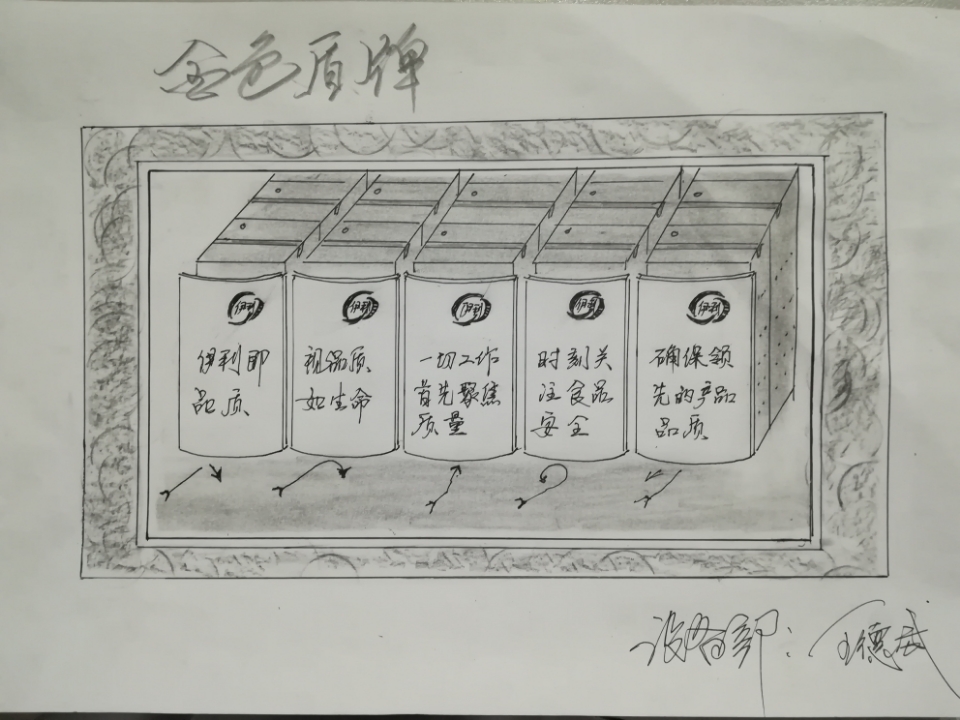 金色盾牌
伊利
伊利即
品质
伊利
视品质
如生命
伊利
一切工作
首先聚焦
质量
伊利
时刻关
注食品
安全
伊利
确保领
先的产品
品质
设备部：王德武